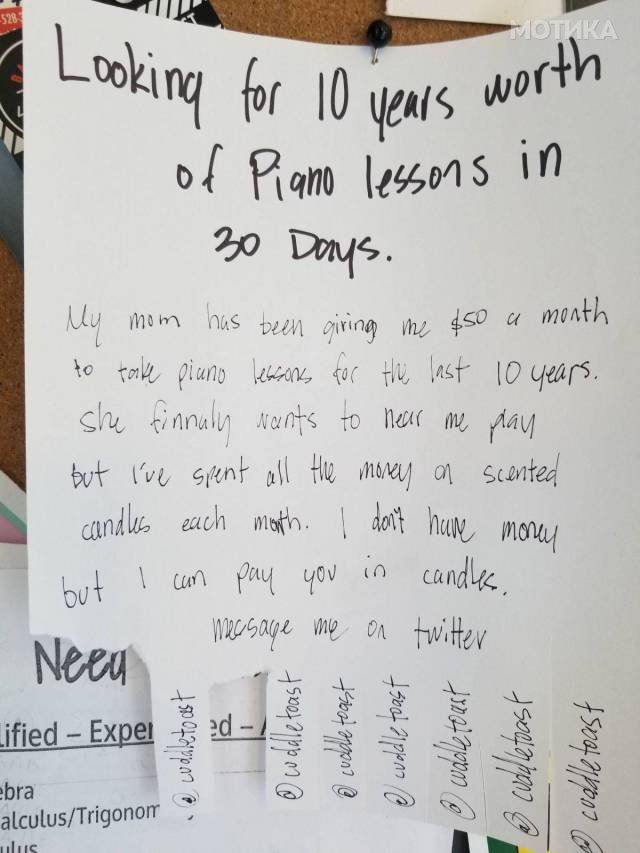 МОТИКА
Looking for 10 years worth
of Piano lessons in
30 Days.
My mom has been giving me $50 a month
to take piano lessons for the last 10 years.
She finnaly wants to hear me play
but I've spent all the money on scented
candles each month. I don't have money
but I can pay you in candles.
message me on twitter
@cuddletoast
@cuddletoast
@cuddletoast
@cuddletoast
@cuddletoast
@cuddletoast
@cuddletoast
Need
lified – Exper
ed –
ebra
alculus/Trigonom
ulus